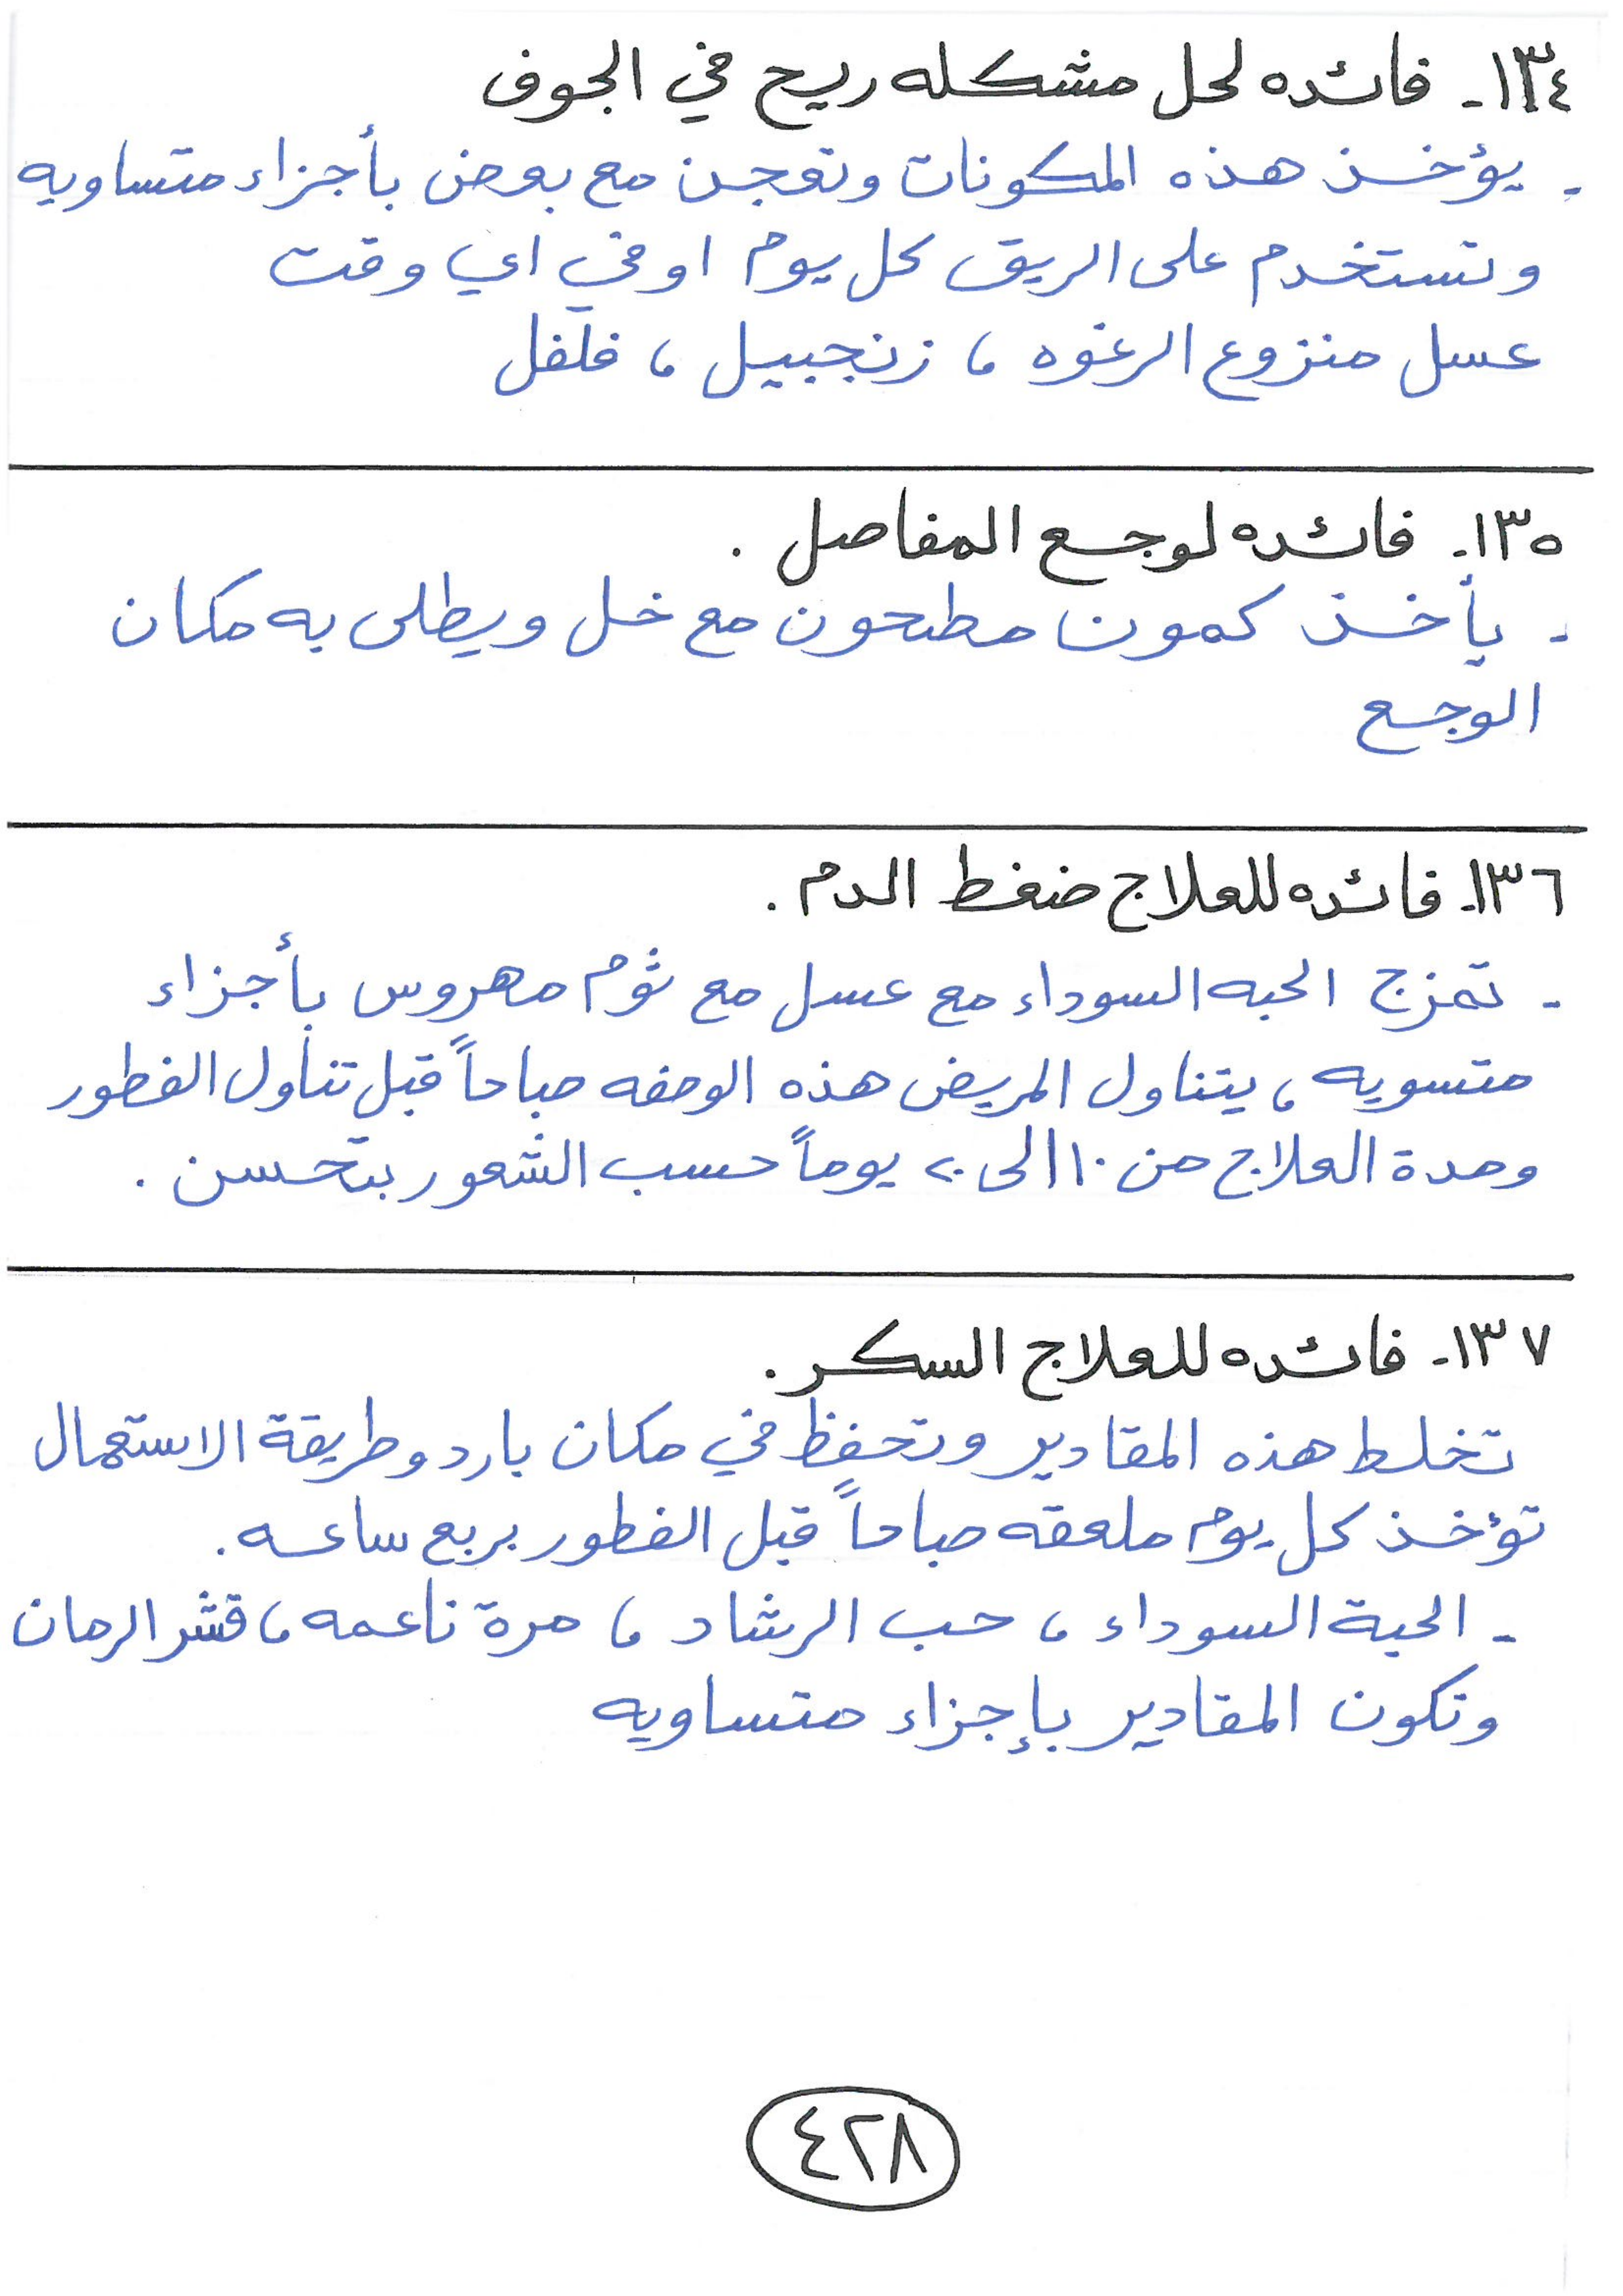 ١٣٤- فائده لحل مشكله ريح في الجوف
- يؤخذ هذه المكونات وتعجن مع بعض بأجزاء متساويه
وتستخدم على الريق كل يوم او في اي وقت
عسل منزوع الرغوه ، زنجبيل ، فلفل
١٣٥- فائده لوجع المفاصل .
- يأخذ كمون مطحون مع خل ويطلى به مكان
الوجع
١٣٦- فائده للعلاج ضغط الدم .
- تمزج الحبه السوداء مع عسل مع ثوم مهروس بأجزاء
متسويه ، يتناول المريض هذه الوصفه صباحاً قبل تناول الفطور
ومدة العلاج من ١٠ الى ٢٠ يوماً حسب الشعور بتحسن .
١٣٧- فائده للعلاج السكر .
تخلط هذه المقادير وتحفظ في مكان بارد وطريقة الاستعمال
تؤخذ كل يوم ملعقه صباحاً قبل الفطور بربع ساعه .
- الحبة السوداء ، حب الرشاد ، مرة ناعمه ، قشر الرمان
وتكون المقادير بإجزاء متساويه
٤٢٨